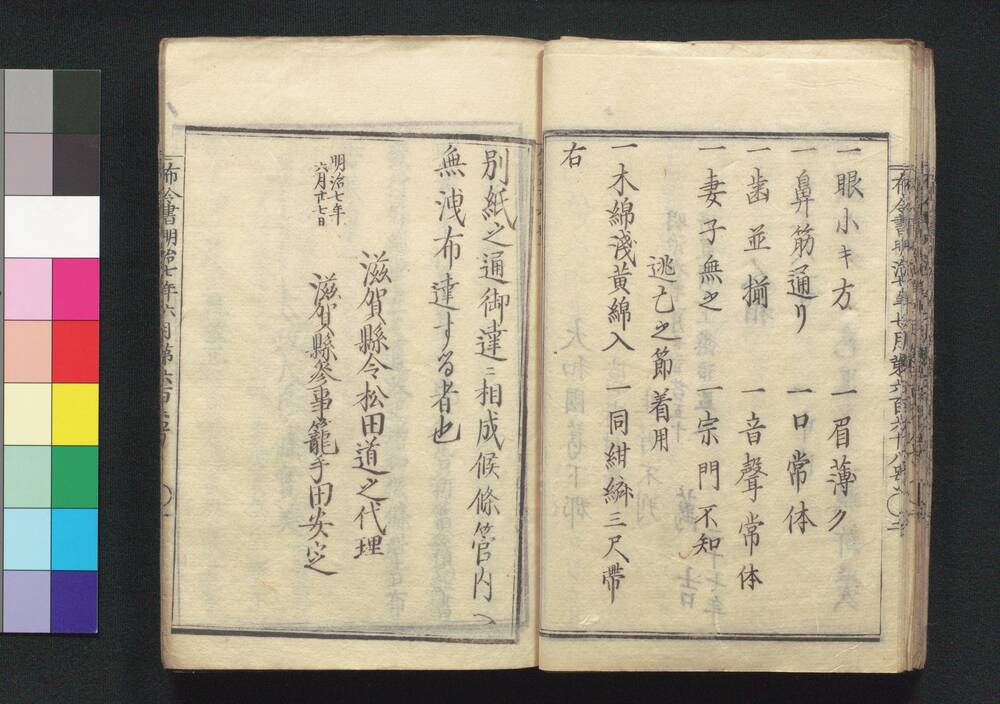 一眼小キ方 一眉薄ク
一鼻筋通リ 一口常体
一歯並揃 一音聲常体
一妻子無之 一宗門不知
逃亡之節着用
一木綿淺黄綿入 一同紺絣三尺帶
右
別紙之通御達ニ相成候條管内ヘ
無洩布達する者也
明治七年
六月廿七日
滋賀縣令松田道之代理
滋賀縣參事籠手田安定
布令書明治七年六月第六百